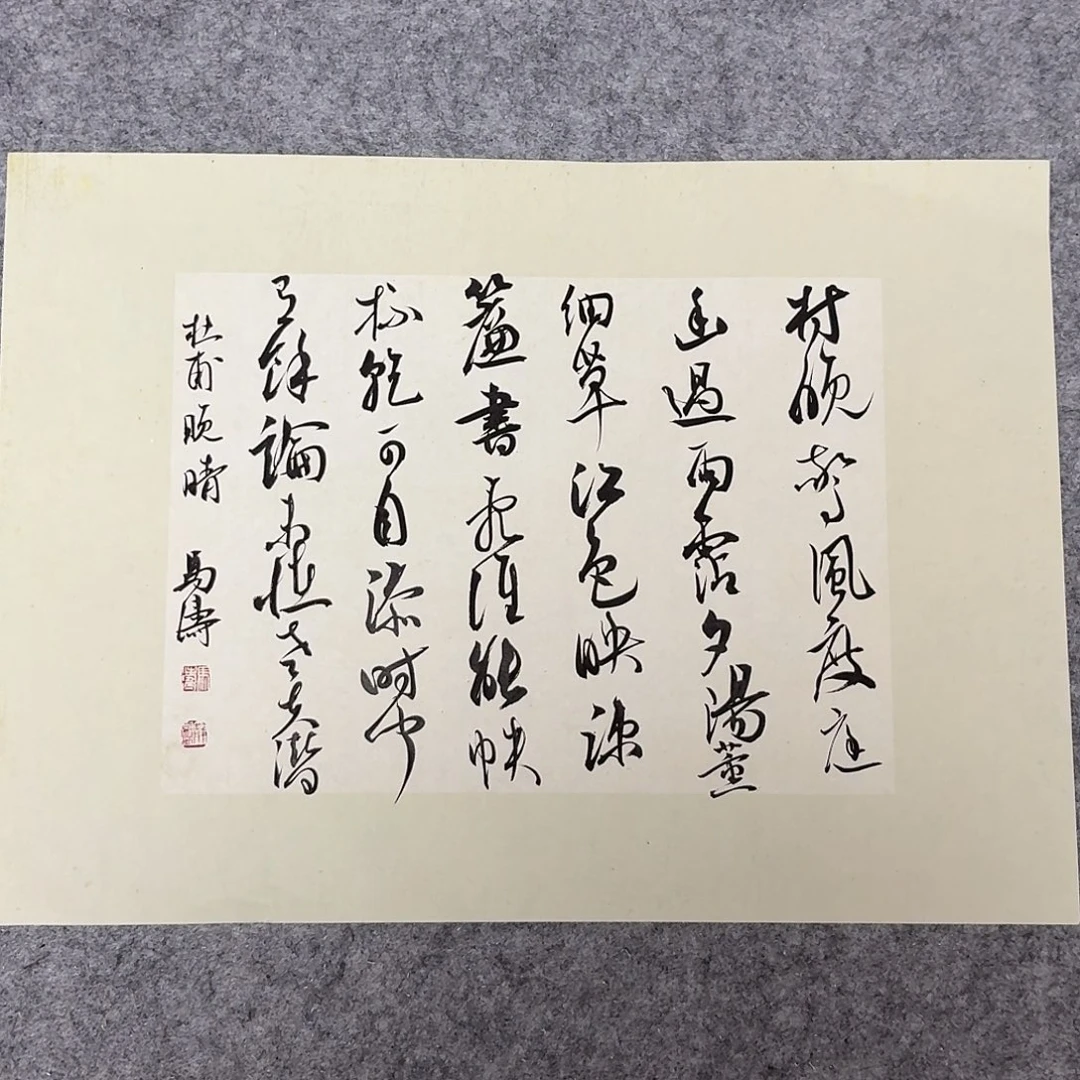 村晚驚風度庭
幽過雨霑夕陽薰
細草江色映疎
簾書亂誰能帙
杯乾可自添時聞
有餘論未怪老夫潛
杜甫晚晴 馬濤